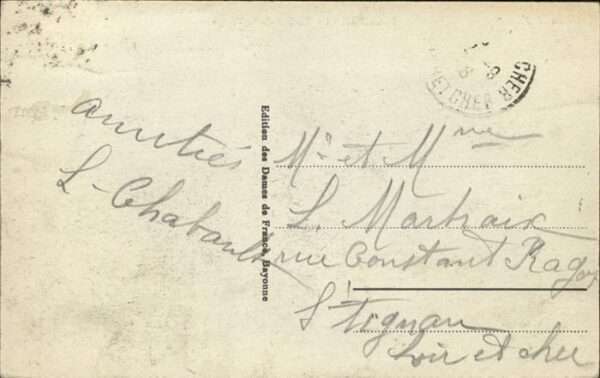 amitiés
L. Chabault
Edition des Dames de France, Bayonne
CHER
ET CHER
Mr et Mme
L.
rue Constant Ragot
St Aignan
Loir et cher